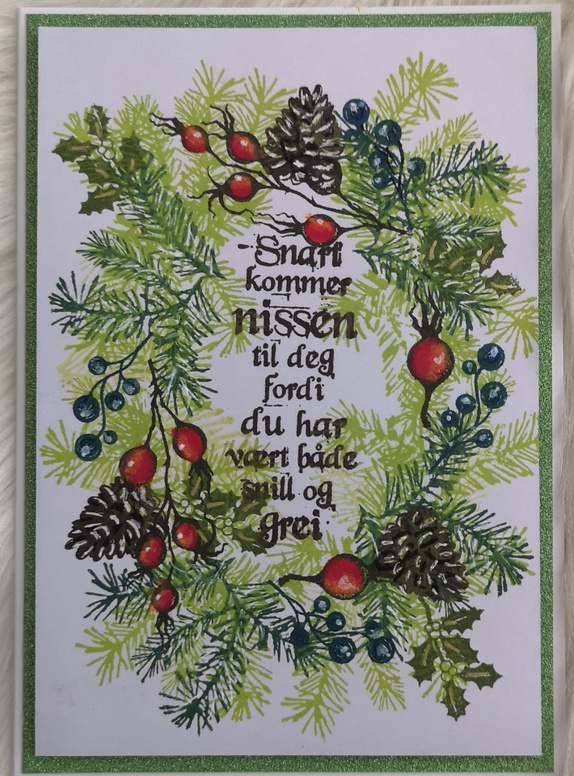 Snart
kommer
nissen
til deg
fordi
du har
vært både
snill og
grei